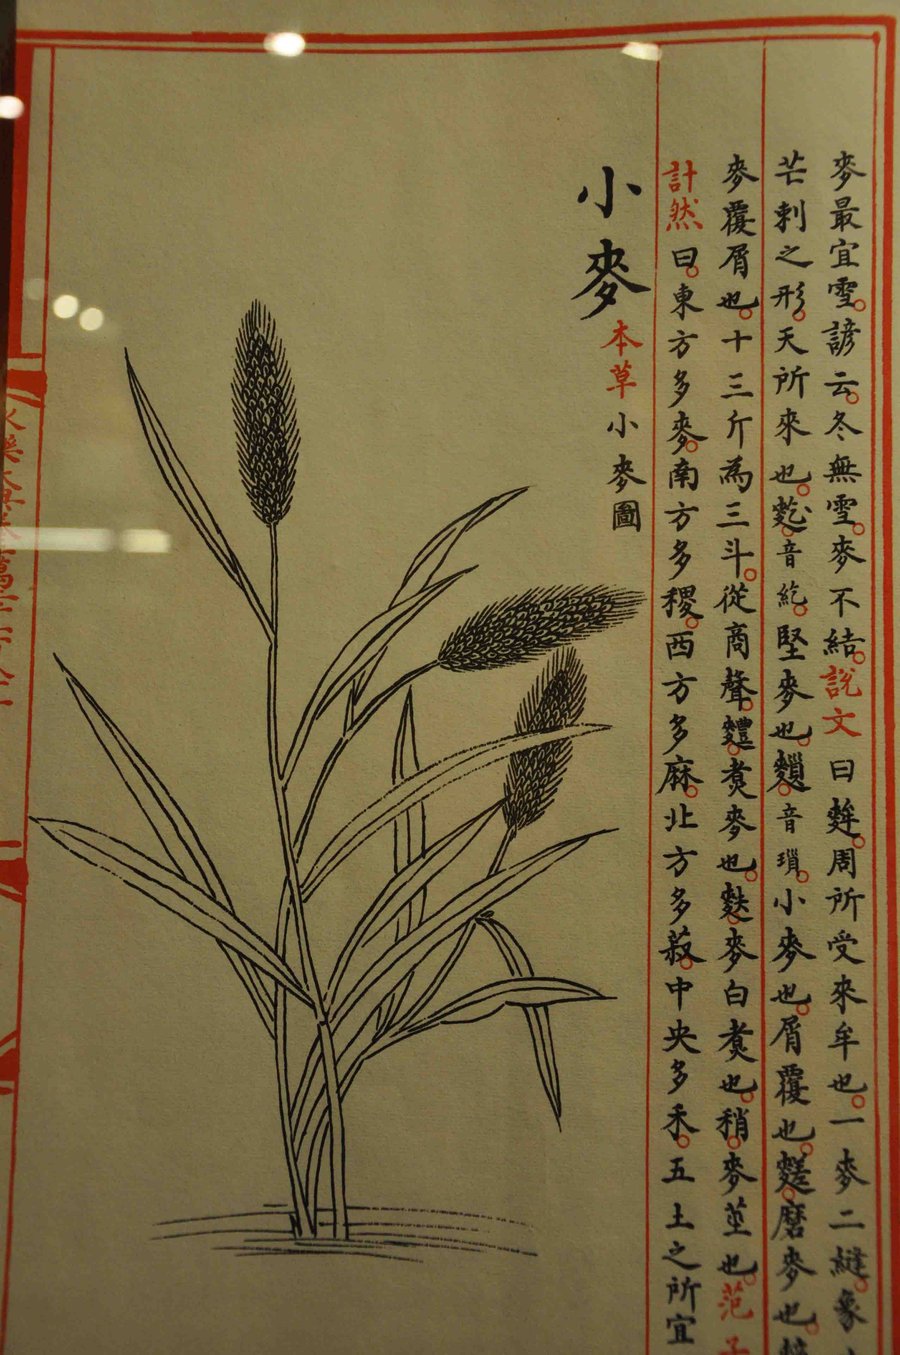 麥最宜雪諺云冬無雪麥不結說文曰麰周所受來牟也一麥二縫象
芒刺之形天所來也麧音紇堅麥也䴹音瑣小麥也屑覆也䴾磨麥也
麥覆屑也十三斤為三斗從啇聲麷煑麥也麩麥白煑也稍麥莖也范子
計然曰東方多麥南方多稷西方多麻北方多菽中央多禾五土之所宜
小麥本草小麥圖
永樂大典卷